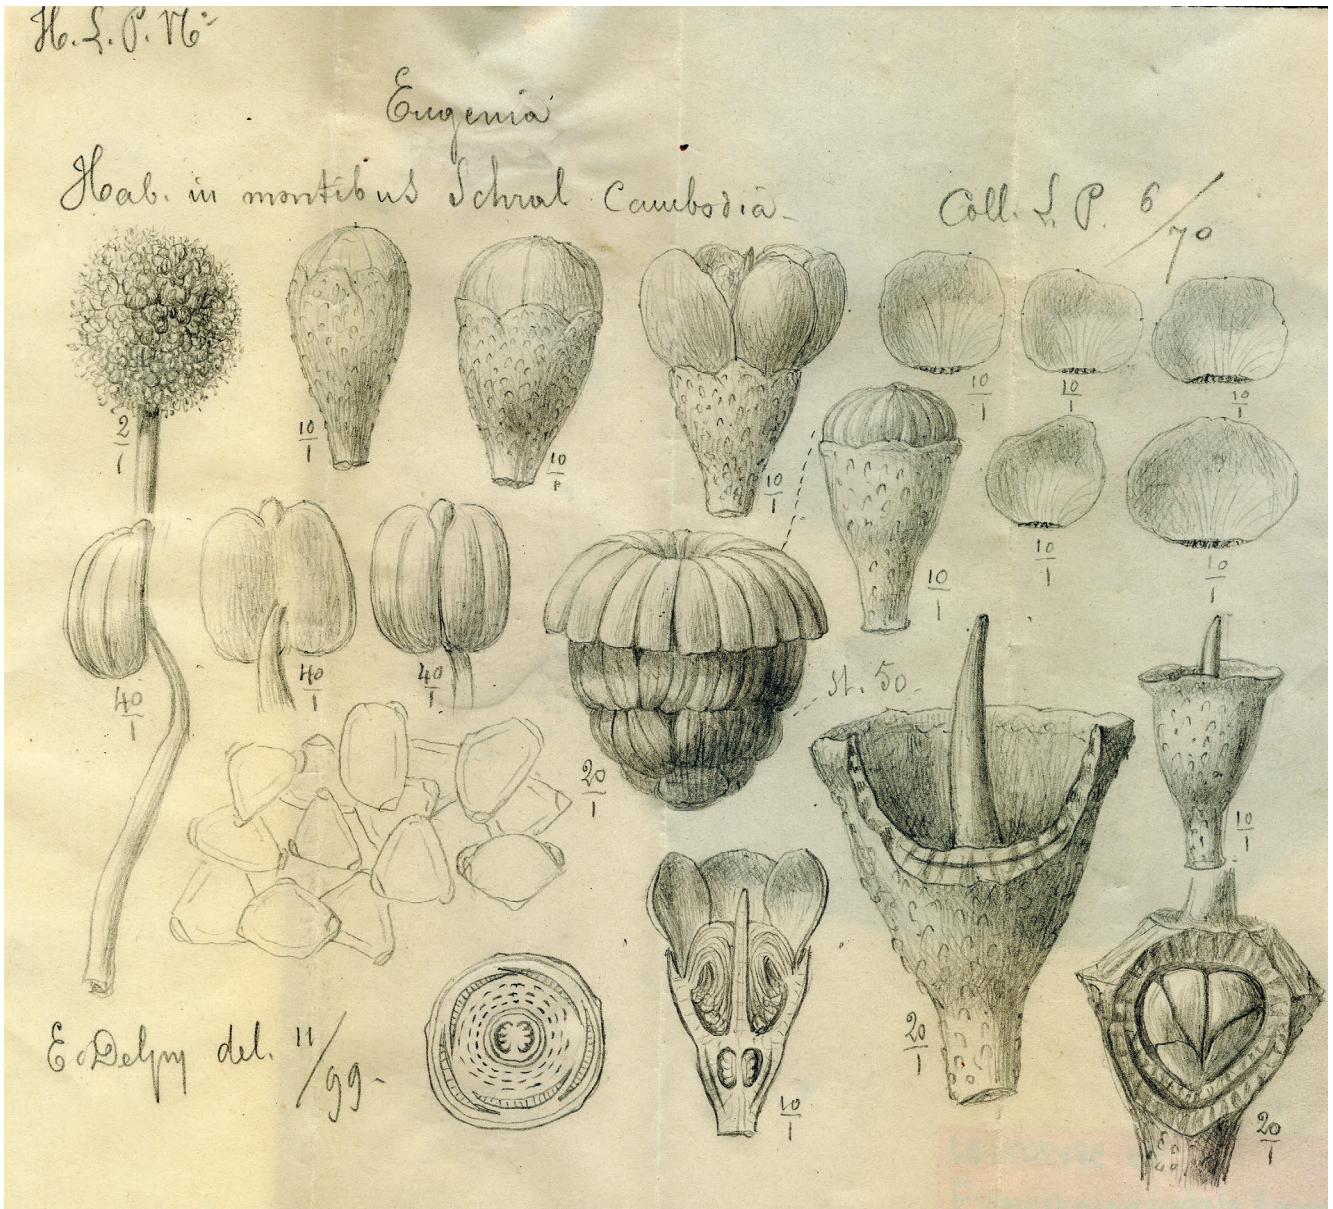 H. L. P. No
Eugenia
Hab. in montibus Schral Cambodia -
Coll. L. P. 6/70
2/1
10/1
10/1
10/1
10/1
10/1
10/1
10/1
10/1
10/1
40/1
40/1
40/1
st. 50.
20/1
10/1
20/1
10/1
20/1
E. Delpy del. 11/99 -